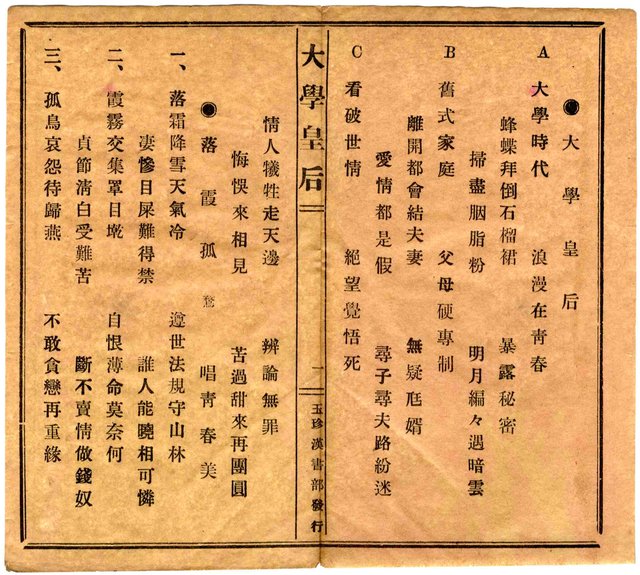 ●大學皇后
A 大學時代 浪漫在靑春
蜂蝶拜倒石榴裙 暴露秘密
掃盡胭脂粉 明月編々遇暗雲
B 舊式家庭 父母硬專制
離開都會結夫妻 無疑尫婿
愛情都是假 尋子尋夫路紛迷
C 看破世情 絕望覺悟死
大學皇后 一 玉珍漢書部發行
情人犧牲走天邊 辨論無罪
悔悞來相見 苦過甜來再團圓
●落霞孤鶩 唱靑春美
一、落霜降雪天氣冷 遵世法規守山林
凄慘目屎難得禁 誰人能曉相可憐
二、霞霧交集罩目墘 自恨薄命莫奈何
貞節淸白受難苦 斷不賣情做錢奴
三、孤鳥哀怨待歸燕 不敢貪戀再重緣